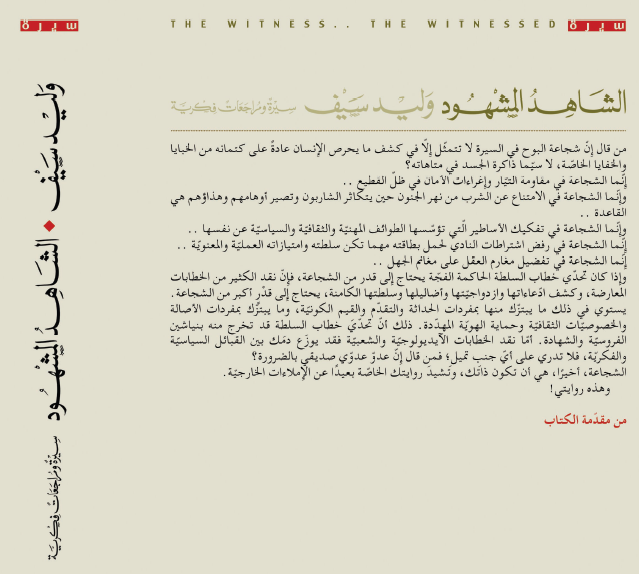 سيرة
THE WITNESS.. THE WITNESSED
سيرة
الشاهد المشهود وليد سيف سيرة ومراجعات فكرية
من قال إنّ شجاعة البوح في السيرة لا تتمثّل إلّا في كشف ما يحرص الإنسان عادةً على كتمانه من الخبايا
والخفايا الخاصّة، لا سيّما ذاكرة الجسد في متاهاته؟
إنّما الشجاعة في مقاومة التيّار وإغراءات الأمان في ظلّ القطيع ..
وإنّما الشجاعة في الامتناع عن الشرب من نهر الجنون حين يتكاثر الشاربون وتصير أوهامهم وهذاؤهم هي
القاعدة ..
وإنّما الشجاعة في تفكيك الأساطير الّتي تؤسّسها الطوائف المهنيّة والثقافيّة والسياسيّة عن نفسها ..
إنّما الشجاعة في رفض اشتراطات النادي لحمل بطاقته مهما تكن سلطته وامتيازاته العمليّة والمعنويّة ..
إنّما الشجاعة في تفضيل مغارم العقل على مغانم الجهل ..
وإذا كان تحدّي خطاب السلطة الحاكمة الفجّة يحتاج إلى قدر من الشجاعة، فإنّ نقد الكثير من الخطابات
المعارضة، وكشف ادّعاءاتها وازدواجيّتها وأضاليلها وسلطتها الكامنة، يحتاج إلى قدْرٍ أكبر من الشجاعة.
يستوي في ذلك ما يبتزّك منها بمفردات الحداثة والتقدّم والقيم الكونيّة، وما يبتزّك بمفردات الأصالة
والخصوصيّات الثقافيّة وحماية الهويّة المهدّدة. ذلك أنّ تحدّيَ خطاب السلطة قد تخرج منه بنياشين
الفروسيّة والشهادة. أمّا نقد الخطابات الآيديولوجيّة والشعبيّة فقد يوزّع دمَك بين القبائل السياسيّة
والفكريّة، فلا تدري على أيّ جنب تميل؛ فمن قال إنّ عدوّ عدوّي صديقي بالضرورة؟
الشجاعة، أخيرًا، هي أن تكون ذاتَك، وتَشيدَ روايتك الخاصّة بعيدًا عن الإملاءات الخارجيّة.
وهذه روايتي!
من مقدّمة الكتاب
وليد سيف ◆ الشاهد المشهود سيرة ومراجعات فكرية